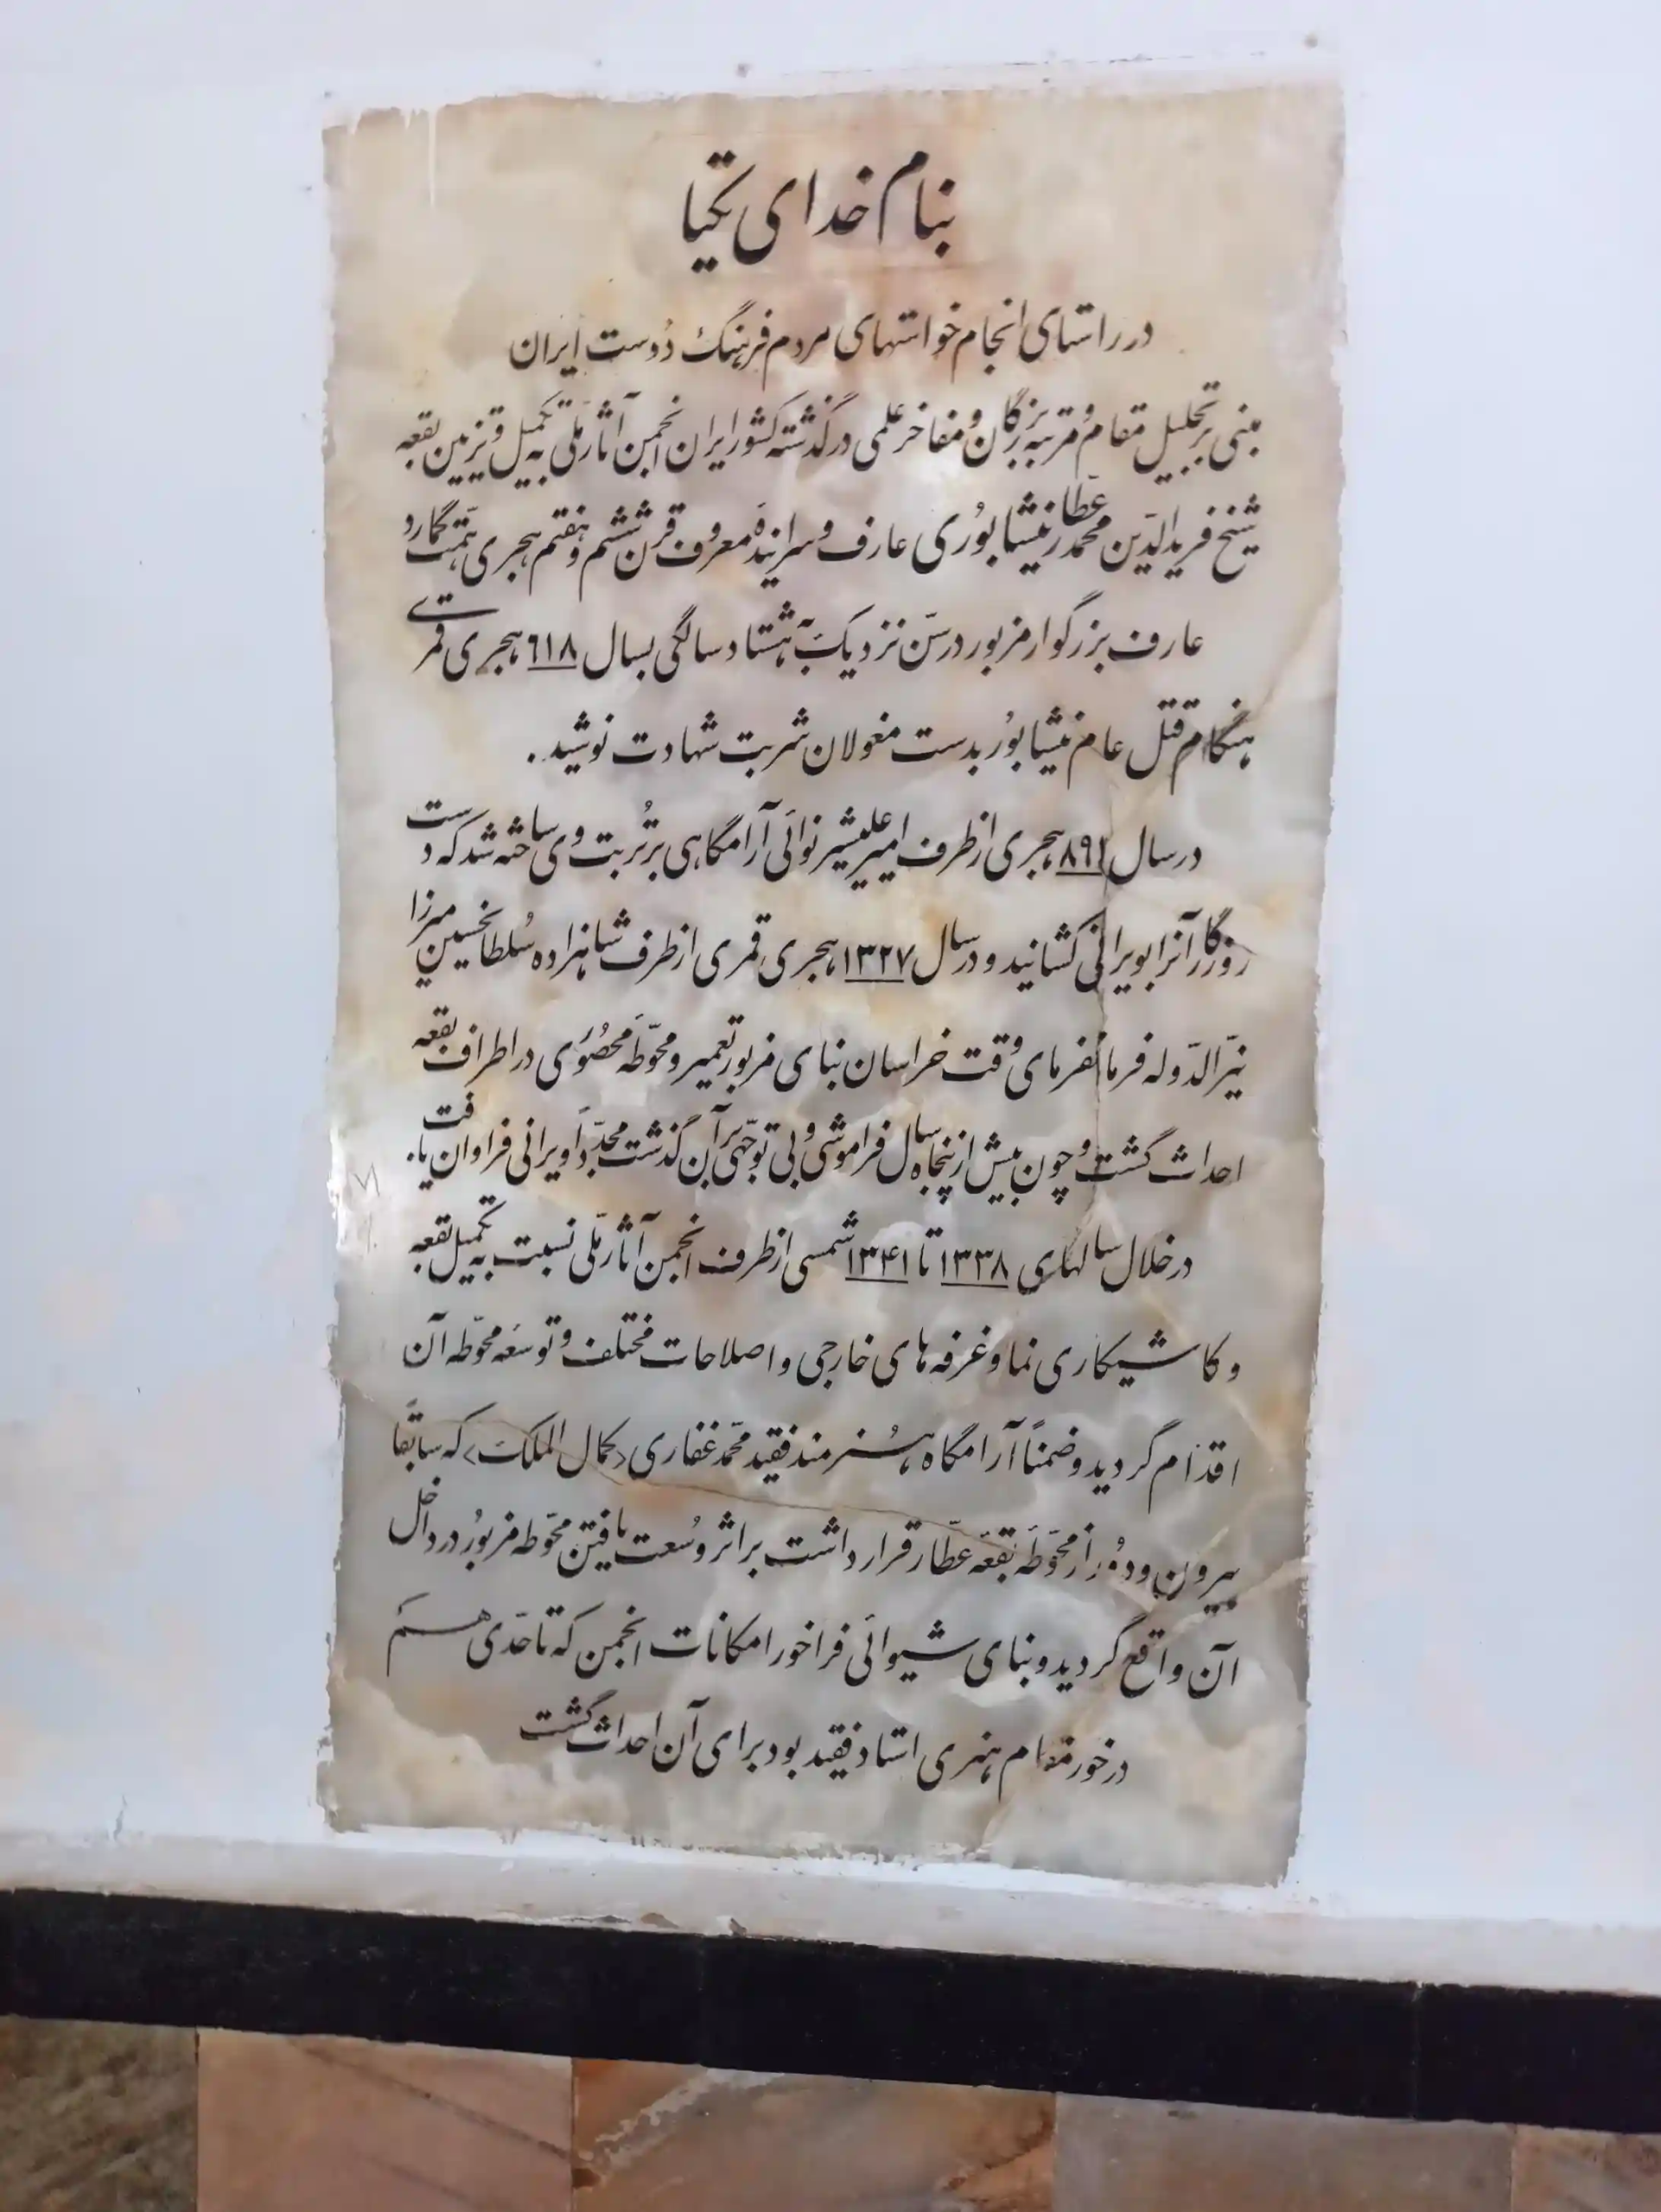 بنام خدای یکتا
در راستای انجام خواستهای مردم فرهنگ دوست ایران
مبنی بر تجلیل مقام و مرتبه بزرگان و مفاخر علمی درگذشته کشور ایران انجمن آثار ملّی به تکمیل و تزیین بقعه
شیخ فریدالدّین محمد عطار نیشابوُری عارف و سراینده معروف قرن ششم و هفتم هجری همّت گمارد
عارف بزرگوار مزبور در سنّ نزدیک به هشتاد سالگی بسال ٦١٨ هجری قمری
هنگام قتل عام نیشابوُر بدست مغولان شربت شهادت نوشید.
در سال ٨٩١ هجری از طرف امیر علیشیر نوائی آرامگاهی بر تُربت وی ساخته شد که دست
روزگار آنرا بویرانی کشانید و در سال ۱۳۲۷ هجری قمری از طرف شاهزاده سُلطانحسین میرزا
نیّرالدّوله فرمانفرمای وقت خراسان بنای مزبور تعمیر و محوّطه محصوُری در اطراف بقعه
احداث گشت و چون بیش از پنجاه سال فراموشی و بی توجّهی بر آن گذشت مجدّداً ویرانی فراوان یافت.
در خلال سالهای ۱۳۳۸ تا ۱۳۴۱ شمسی از طرف انجمن آثار ملّی نسبت به تکمیل بقعه
و کاشیکاری نما و غرفه های خارجی و اصلاحات مختلف و توسعه محوّطه آن
اقدام گردید و ضمناً آرامگاه هُنرمند فقید محمّد غفاری <کمال الملک> که سابقاً
بیرون و دوُر از محوّطه بقعه عطّار قرار داشت بر اثر وُسعت یافتن محوّطه مزبوُر در داخل
آن واقع گردید و بنای شیوائی فراخور امکانات انجمن که تا حدّی هم
در خور مقام هنری استاد فقید بود برای آن احداث گشت